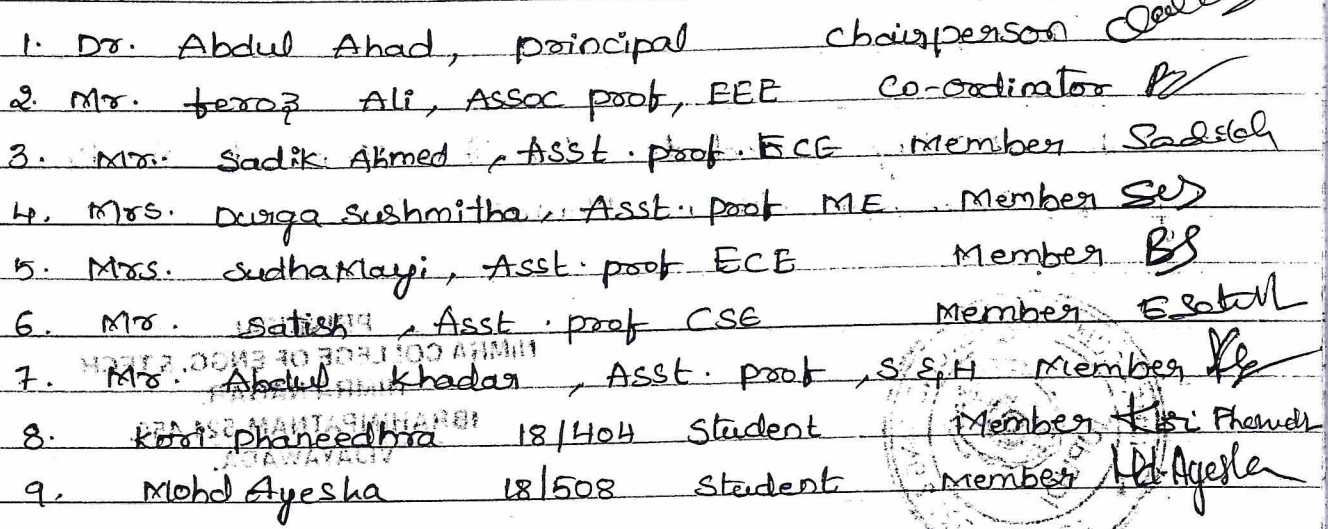 1. Dr. Abdul Ahad, principal chairperson
2. Mr. feroz Ali, Assoc prof, EEE Co-ordinator
3. Mr. Sadik Ahmed, Asst. prof. ECE Member Sadiah
4. Mrs. Durga Sushmitha, Asst. prof ME Member
5. Mrs. SudhaMayi, Asst. prof ECE Member BS
6. Mr. Satish, Asst. prof CSE Member
7. Mr. Abdul Khadar, Asst. prof, S & H Member
8. Kori Phaneedhra 18/404 Student Member
9. Mohd Ayesha 18/508 Student Member Md Ayesha